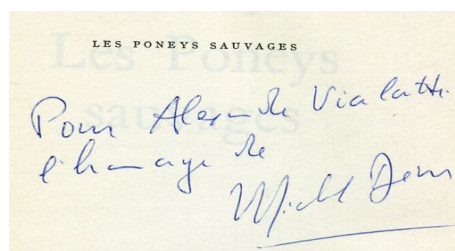 LES PONEYS SAUVAGES
Les Poneys
sauvages
Pour Alexandre Vialatte
l'hommage de
Michel Déon